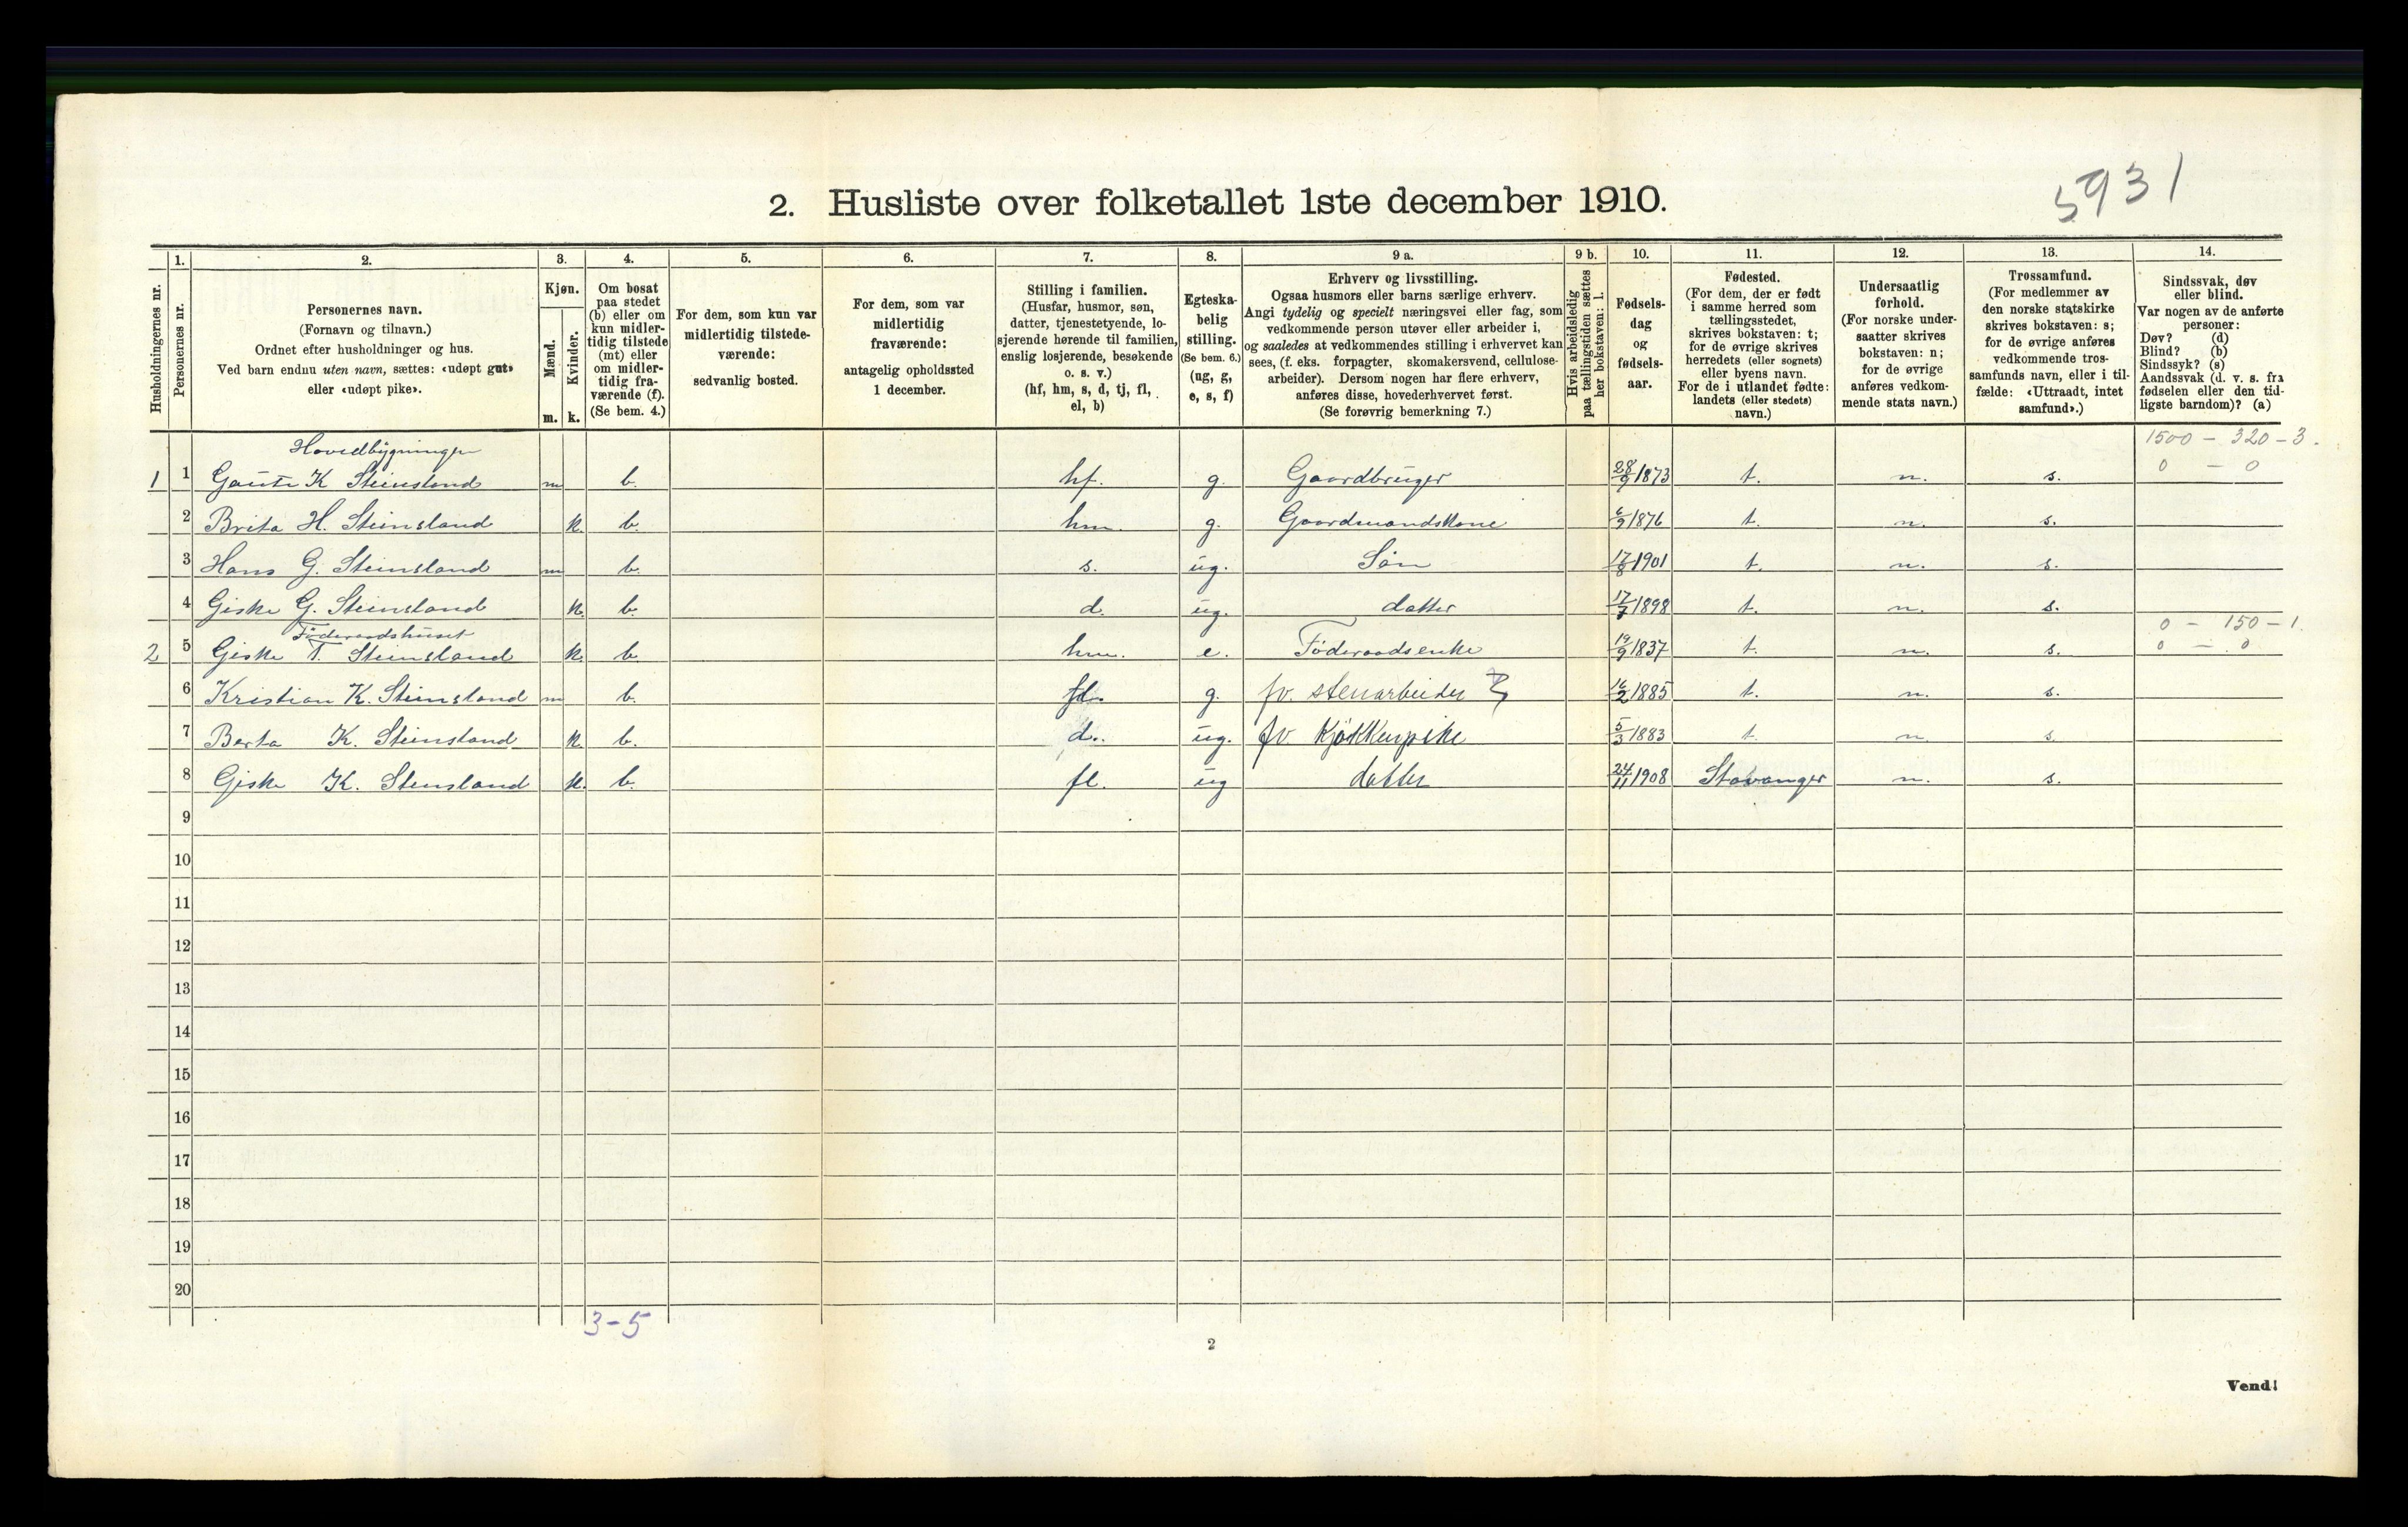 5931
2. Husliste over folketallet 1ste december 1910.
Husholdningernes nr.
1.
Personernes nr.
2.
Personernes navn.
(Fornavn og tilnavn.)
Ordnet efter husholdninger og hus.
Ved barn endnu uten navn, sættes: «udøpt gut»
eller «udøpt pike».
3.
Kjøn.
Mænd.
m.
Kvinder.
k.
4.
Om bosat
paa stedet
(b) eller om
kun midler-
tidig tilstede
(mt) eller
om midler-
tidig fra-
værende (f).
(Se bem. 4.)
5.
For dem, som kun var
midlertidig tilstede-
værende:
sedvanlig bosted.
6.
For dem, som var
midlertidig
fraværende:
antagelig opholdssted
1 december.
7.
Stilling i familien.
(Husfar, husmor, søn,
datter, tjenestetyende, lo-
sjerende hørende til familien,
enslig losjerende, besøkende
o. s. v.)
(hf, hm, s, d, tj, fl,
el, b)
8.
Egteska-
belig
stilling.
(Se bem. 6.)
(ug, g,
e, s, f)
9 a.
Erhverv og livsstilling.
Ogsaa husmors eller barns særlige erhverv.
Angi tydelig og specielt næringsvei eller fag, som
vedkommende person utøver eller arbeider i,
og saaledes at vedkommendes stilling i erhvervet kan
sees, (f. eks. forpagter, skomakersvend, cellulose-
arbeider). Dersom nogen har flere erhverv,
anføres disse, hovederhvervet først.
(Se forøvrig bemerkning 7.)
9 b.
Hvis arbeidsledig
paa tællingstiden sættes
her bokstaven: l.
10.
Fødsels-
dag
og
fødsels-
aar.
11.
Fødested.
(For dem, der er født
i samme herred som
tællingsstedet,
skrives bokstaven: t;
for de øvrige skrives
herredets (eller sognets)
eller byens navn.
For de i utlandet fødte:
landets (eller stedets)
navn.)
12.
Undersaatlig
forhold.
(For norske under-
saatter skrives
bokstaven: n;
for de øvrige
anføres vedkom-
mende stats navn.)
13.
Trossamfund.
(For medlemmer av
den norske statskirke
skrives bokstaven: s;
for de øvrige anføres
vedkommende tros-
samfunds navn, eller i til-
fælde: «Uttraadt, intet
samfund».)
14.
Sindssvak, døv
eller blind.
Var nogen av de anførte
personer:
Døv? (d)
Blind? (b)
Sindssyk? (s)
Aandssvak (d. v. s. fra
fødselen eller den tid-
ligste barndom)? (a)
Hovedbygningen 1500 - 320 - 3.
1 1 Gaute K Steinsland m b. hf. g. Gaardbruger 28/9 1873 t. n. s. 0 - 0
2 Brita H. Steinsland k. b. hm. g. Gaardmandskone 6/9 1876 t. n. s.
3 Hans G. Steinsland m b. s. ug. Søn 17/8 1901 t. n. s.
4 Giske G. Steinsland k. b. d. ug. datter 17/7 1898 t. n. s.
Føderaadshuset 0 - 150 - 1.
2 5 Giske T. Steinsland k. b. hm. e. Føderaadsenke 19/9 1837 t. n. s. 0 - 0
6 Kristian K. Steinsland m b. fl. g. fv. stenarbeider 16/2 1885 t. n. s.
7 Berta K. Steinsland k. b. d. ug. fv. Kjøkkenpike 5/3 1883 t. n. s.
8 Giske K. Stensland k. b. fl. ug datter 24/11 1908 Stavanger n. s.
9
10
11
12
13
14
15
16
17
18
19
20
3-5
2
Vend!